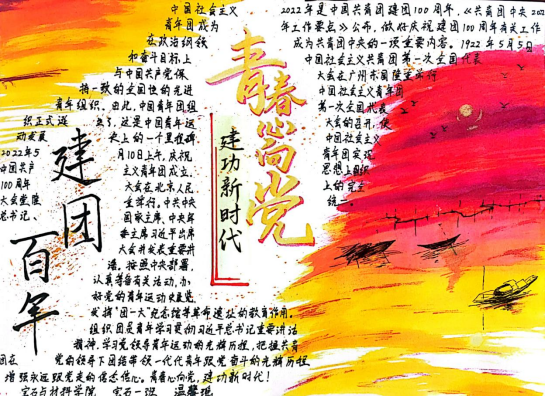 中国社会主义
青年团成为
在政治纲领
和奋斗目标上
与中国共产党保
持一致的全国性的先进
青年组织。由此,中国青年团组
织正式诞 生了,这是中国青年运
动发展 史上的一个里程碑
2022年5 月10日上午,庆祝
中国共产 主义青年团成立
100周年 大会在北京人民
大会堂隆 重举行。中共中央
总书记、 国家主席、中央军
委主席习近平出席
大会并发表重要讲
话。按照中央部署,
认真筹备有关活动,办
好党的青年运动史展览,
发挥"团一大"纪念馆等革命遗址的教育作用。
组织团员青年学习贯彻习近平总书记重要讲话
精神,学习党领导青年运动的光辉历程,把握共青
团在 党的领导下团结带领一代代青年跟党奋斗的光辉历程
增强永远跟党走的信念信心。青春心向党,建功新时代!
宝石与材料学院 宝石一班 温馨琪
建团百年
青春心向党
建功新时代
2022年是中国共青团建团100周年,《共青团中央202
年工作要点》公布,做好庆祝建团100周年有关工作
成为共青团中央的一项重要内容。1922年5月5日
中国社会主义共青团第一次全国代表
大会在广州东园隆重举行
中国社会主义青年团
第一次全国代表
大会的召开,使
中国社会主义
青年团实现
思想上组织
上的完全
统一。